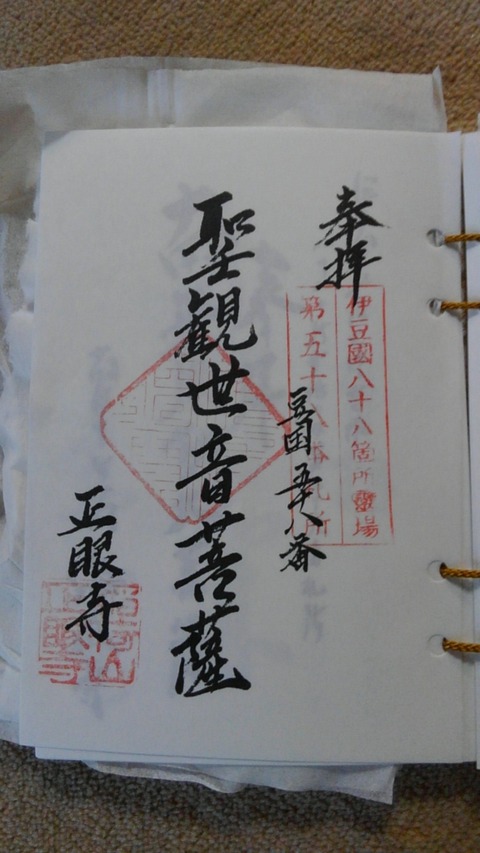 奉拝
伊豆國八十八箇所霊場
第五十八番札所
豆国五十八番
聖観世音菩薩
正眼寺